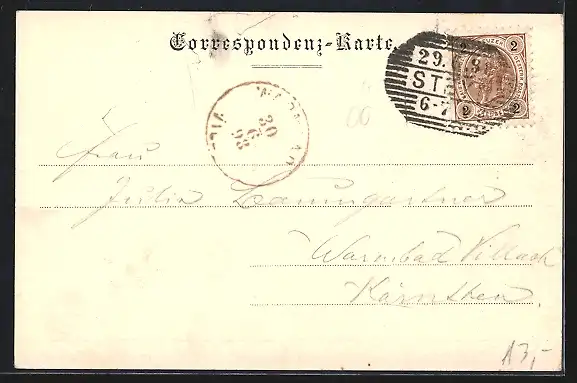 Correspondenz-Karte.
29. 6. 8
ST
6-7
2 2
2 2
30
6
98
Frau
Julia Baumgartner
Warmbad Villach
Kärnthen.
13,-